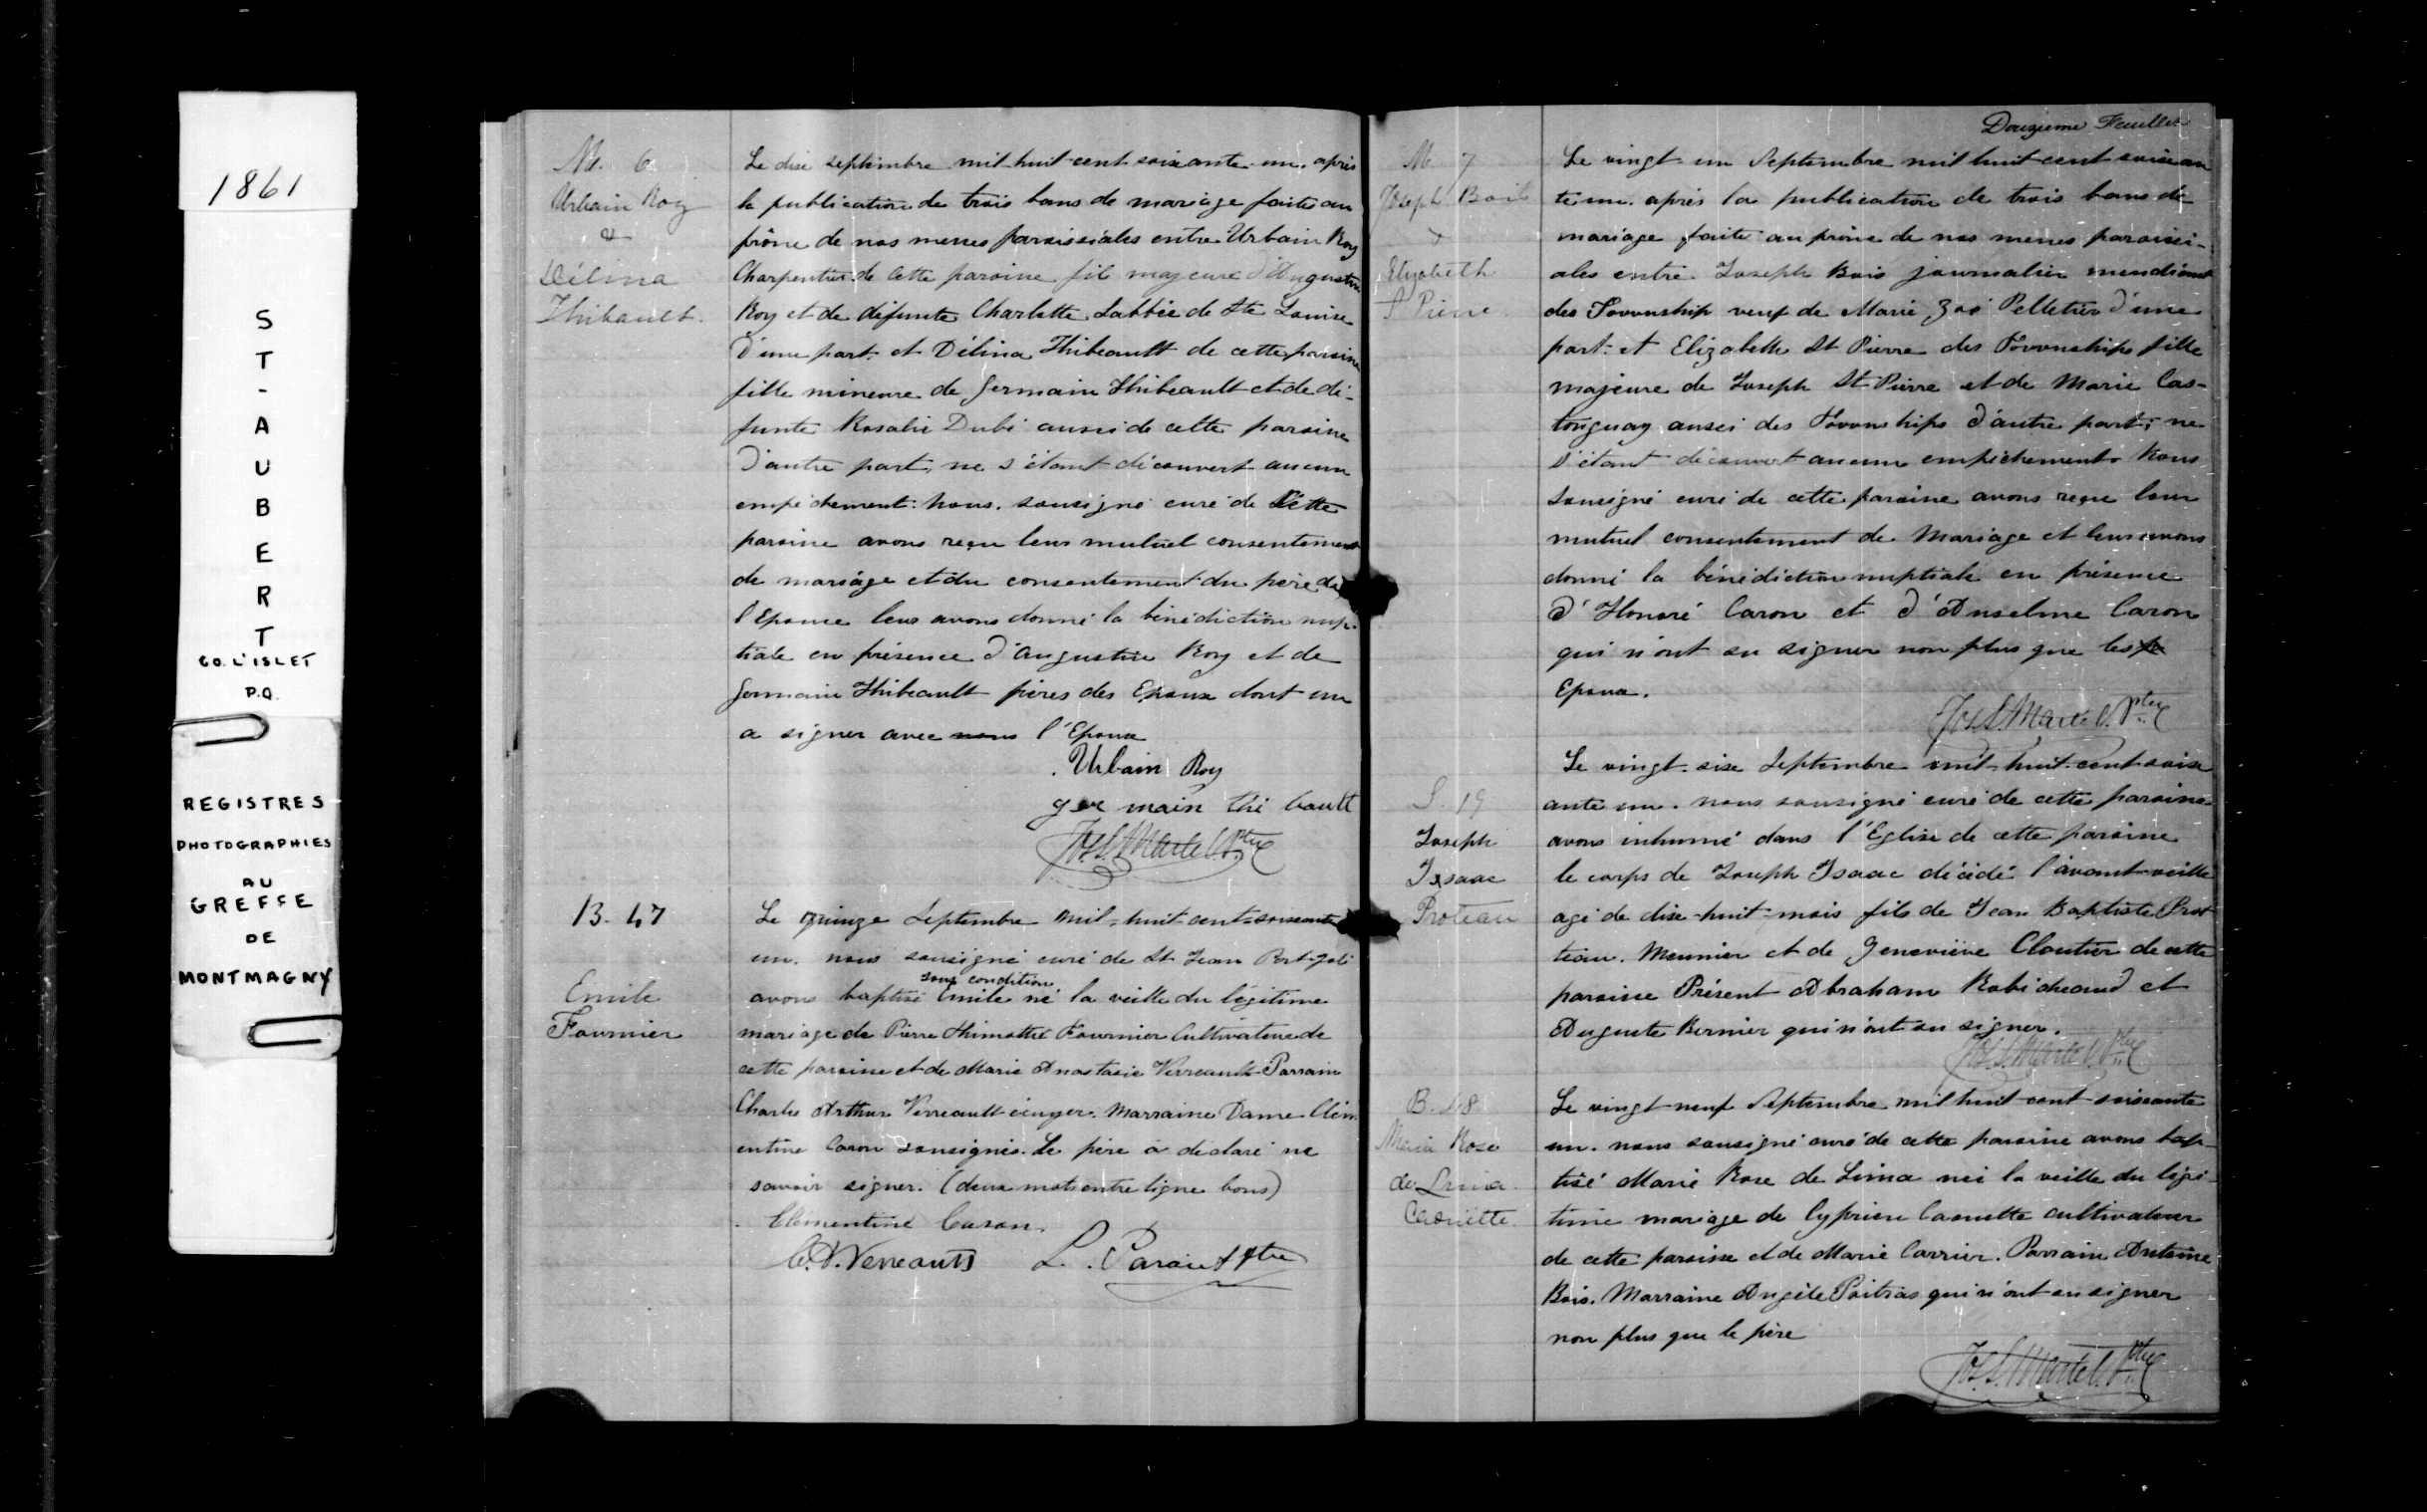 1861
S
T
-
A
U
B
E
R
T
CO. L'ISLET
P.Q.
REGISTRES
PHOTOGRAPHIES
AU
GREFFE
DE
MONTMAGNY
M. 6
Urbain Roy
&
Délina
Thibault.
Le dix septembre mil huit cent soixante-un. après
la publication de trois bans de mariage faite au
prône de nos messes paroissiales entre Urbain Roy
Charpentier de cette paroisse fils majeure d'Augustin
Roy et de défunte Charlotte Labbée de Ste Louise
d'une part. et Délina Thibeault de cette paroisse
fille mineure de Germain Thibeault et de dé-
funte Rosalie Dubé aussi de cette paroisse
d'autre part, ne s'étant découvert aucun
empêchement: nous, sousigné curé de Cette
paroisse avons reçu leur mutuel consentement
de mariage et du consentement du père de
l'Epouse leur avons donné la bénédiction nup-
tiale en présence d'Augustin Roy et de
Germain Thibeault pères des Epoux dont un
a signer avec nous l'Epoux
Urbain Roy
ger main thi bault
Jos. S. Martel. Ptre
B. 47
Emile
Fournier
Le quinze Septembre mil-huit cent-soixante
un. nous sousigné curé de St Jean Port-Joli
sous condition
avons baptisé Emile né la veille du légitime
mariage de Pierre Thimothé Fournier Cultivateur de
cette paroisse et de Marie Anastasie Verreault-Parrain
Charles Arthur Verreault écuyer. Marraine Dame Clém
entine Caron sousignés. Le père a déclaré ne
savoir signer. (deux mots entre ligne bons)
Clémentine Caron.
C. A. Verreault L. Parant Ptre
Douzieme Feuillet
M 7
Joseph Bois
&
Elizabeth
St Pierre
Le vingt-un Septembre mil huit cent soixan
te un. après la publication de trois bans de
mariage faite au prône de nos messes paroissi-
ales entre Joseph Bois journalier mendiant
des Township veuf de Marie Zoé Pelletier d'une
part. et Elizabeth St Pierre des Townships fille
majeure de Joseph St Pierre et de Marie Cas-
tonguay aussi des Townships d'autre part; ne
s'étant découvert aucun empêchements Nous
sousigné curé de cette paroisse avons reçu leur
mutuel consentement de Mariage et leur avons
donné la bénédiction nuptiale en présence
d'Honoré Caron et d'Anselme Caron
qui n'ont su signer non plus que les
Epoux.
Jos. S. Martel. Ptre
S. 19
Joseph
Isaac
Proteau
Le vingt-six Septembre mil-huit-cent-soix
ante un. nous sousigné curé de cette paroisse
avons inhumé dans l'Eglise de cette paroisse
le corps de Joseph Isaac décédé l'avant-veille
agé de dix-huit-mois fils de Jean Baptiste Prot
teau. Meunier et de Geneviève Cloutier de cette
paroisse Présent Abraham Robicheaud et
Auguste Bernier qui n'ont su signer.
Jos. S. Martel. Ptre
B. 48
Marie Rose
de Lima
Caouette
Le vingt-neuf Septembre mil huit-cent-soixante
un. nous sousigné curé de cette paroisse avons bap-
tisé Marie Rose de Lima née la veille du légi-
time mariage de Cyprien Caouette cultivateur
de cette paroisse et de Marie Carrier. Parrain Antoine
Bois. Marraine Angèle Poitras qui n'ont su signer
non plus que le père
Jos. S. Martel. Ptre